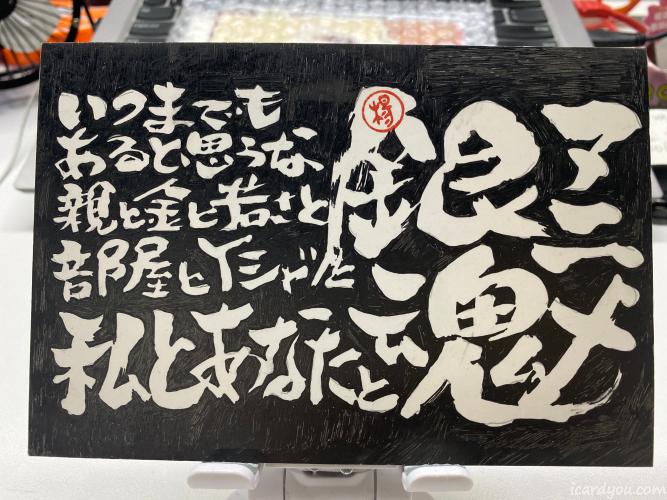 いつまでも
あると思うな
親と金と若さと
部屋とYシャツと
私とあなたと
アニメ
銀魂
icardyou.com